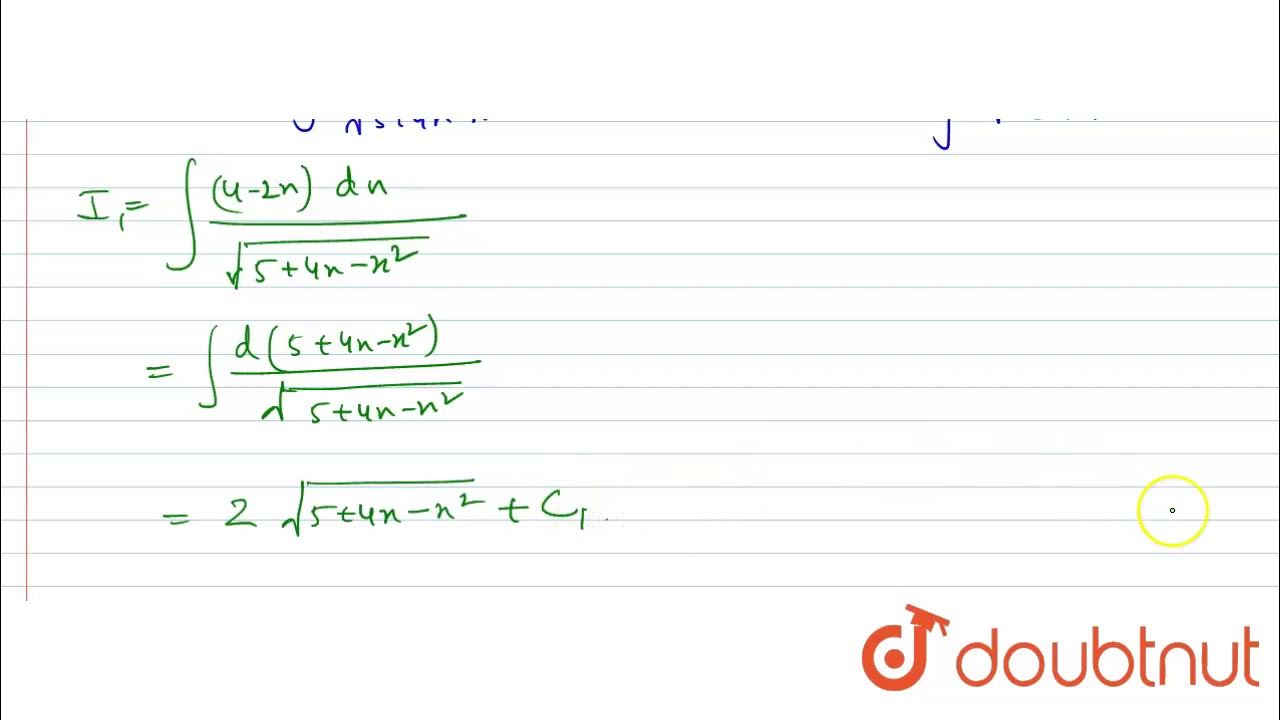 I₁ = ∫ (4-2x) dx / √(5+4x-x²)
= ∫ d(5+4x-x²) / √(5+4x-x²)
= 2 √(5+4x-x²) + C₁.
doubtnut